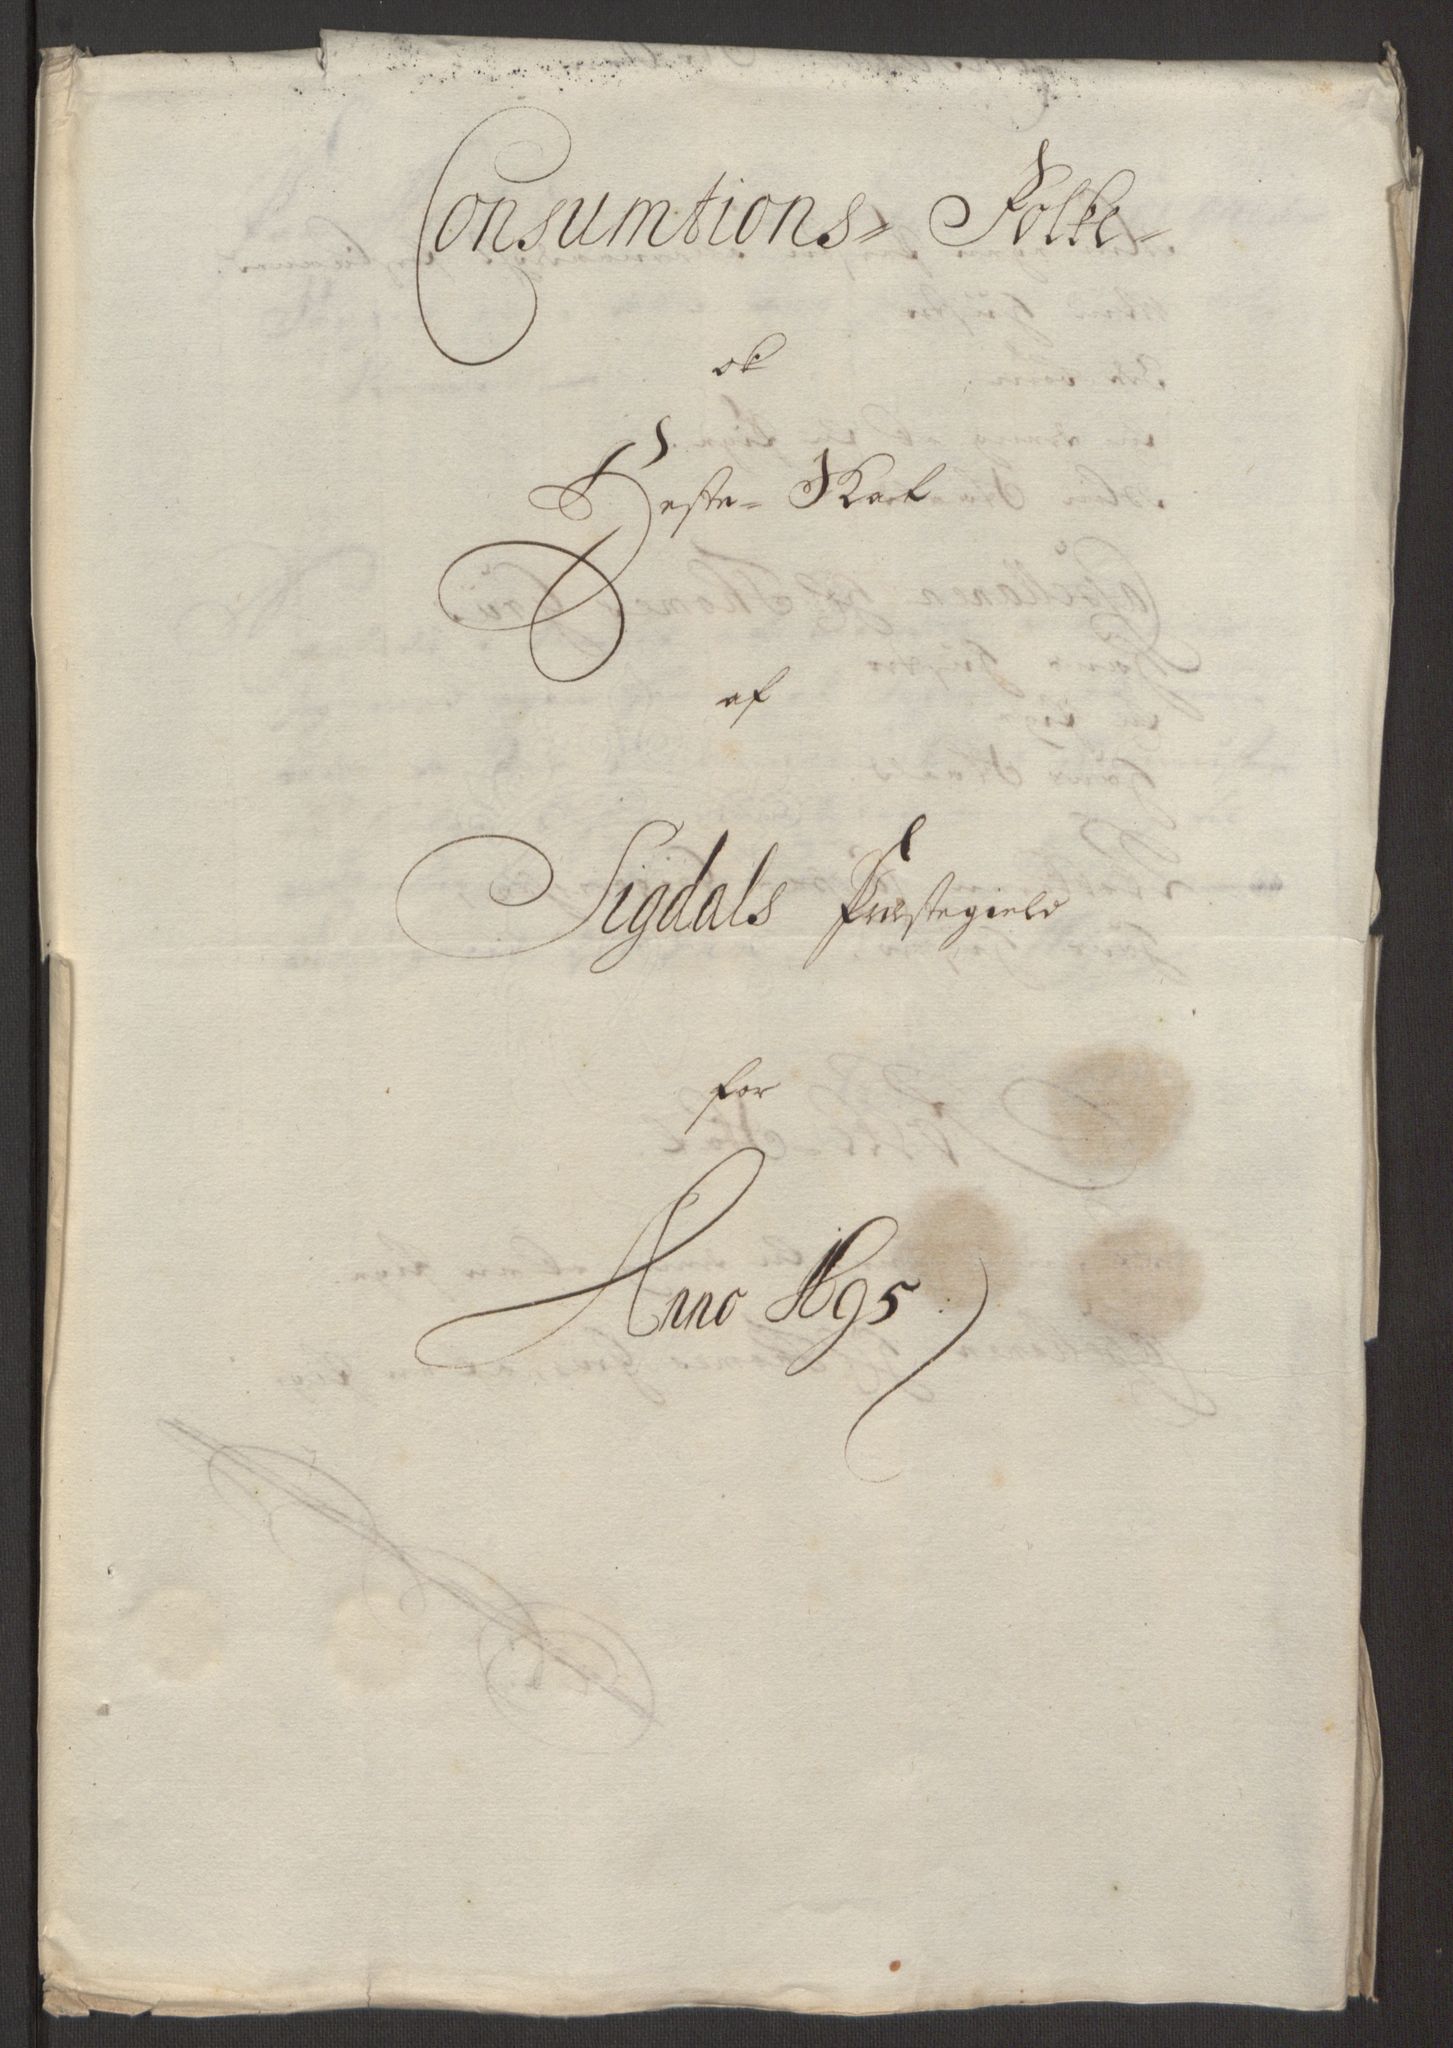 Consumtions- Folke-
ok
Heste- Skat
af
Sigdals Præstegield
for
Anno 1695